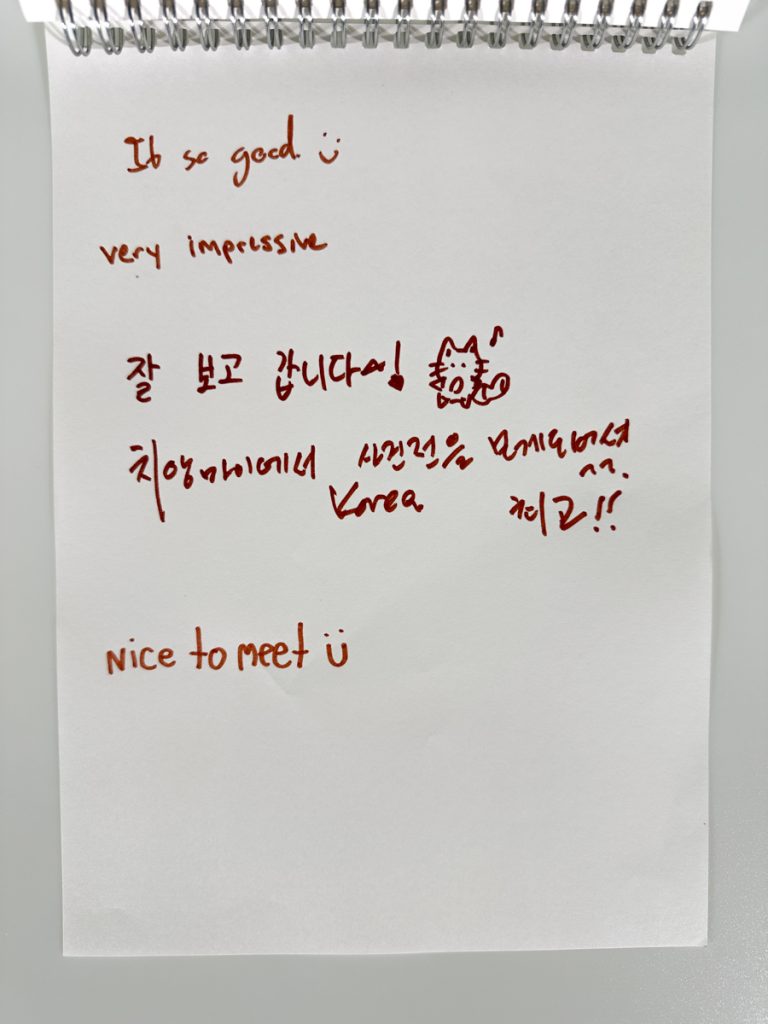 It so good. ü
very impressive
잘 보고 갑니다~!
치앙마이에서 사진전을 보게되어서
^^.
Korea 최고!!
Nice to meet ü